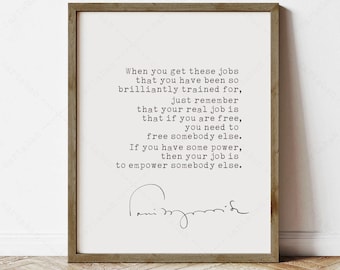 When you get these jobs
that you have been so
brilliantly trained for,
just remember
that your real job is
that if you are free,
you need to
free somebody else.
If you have some power,
then your job is
to empower somebody else.